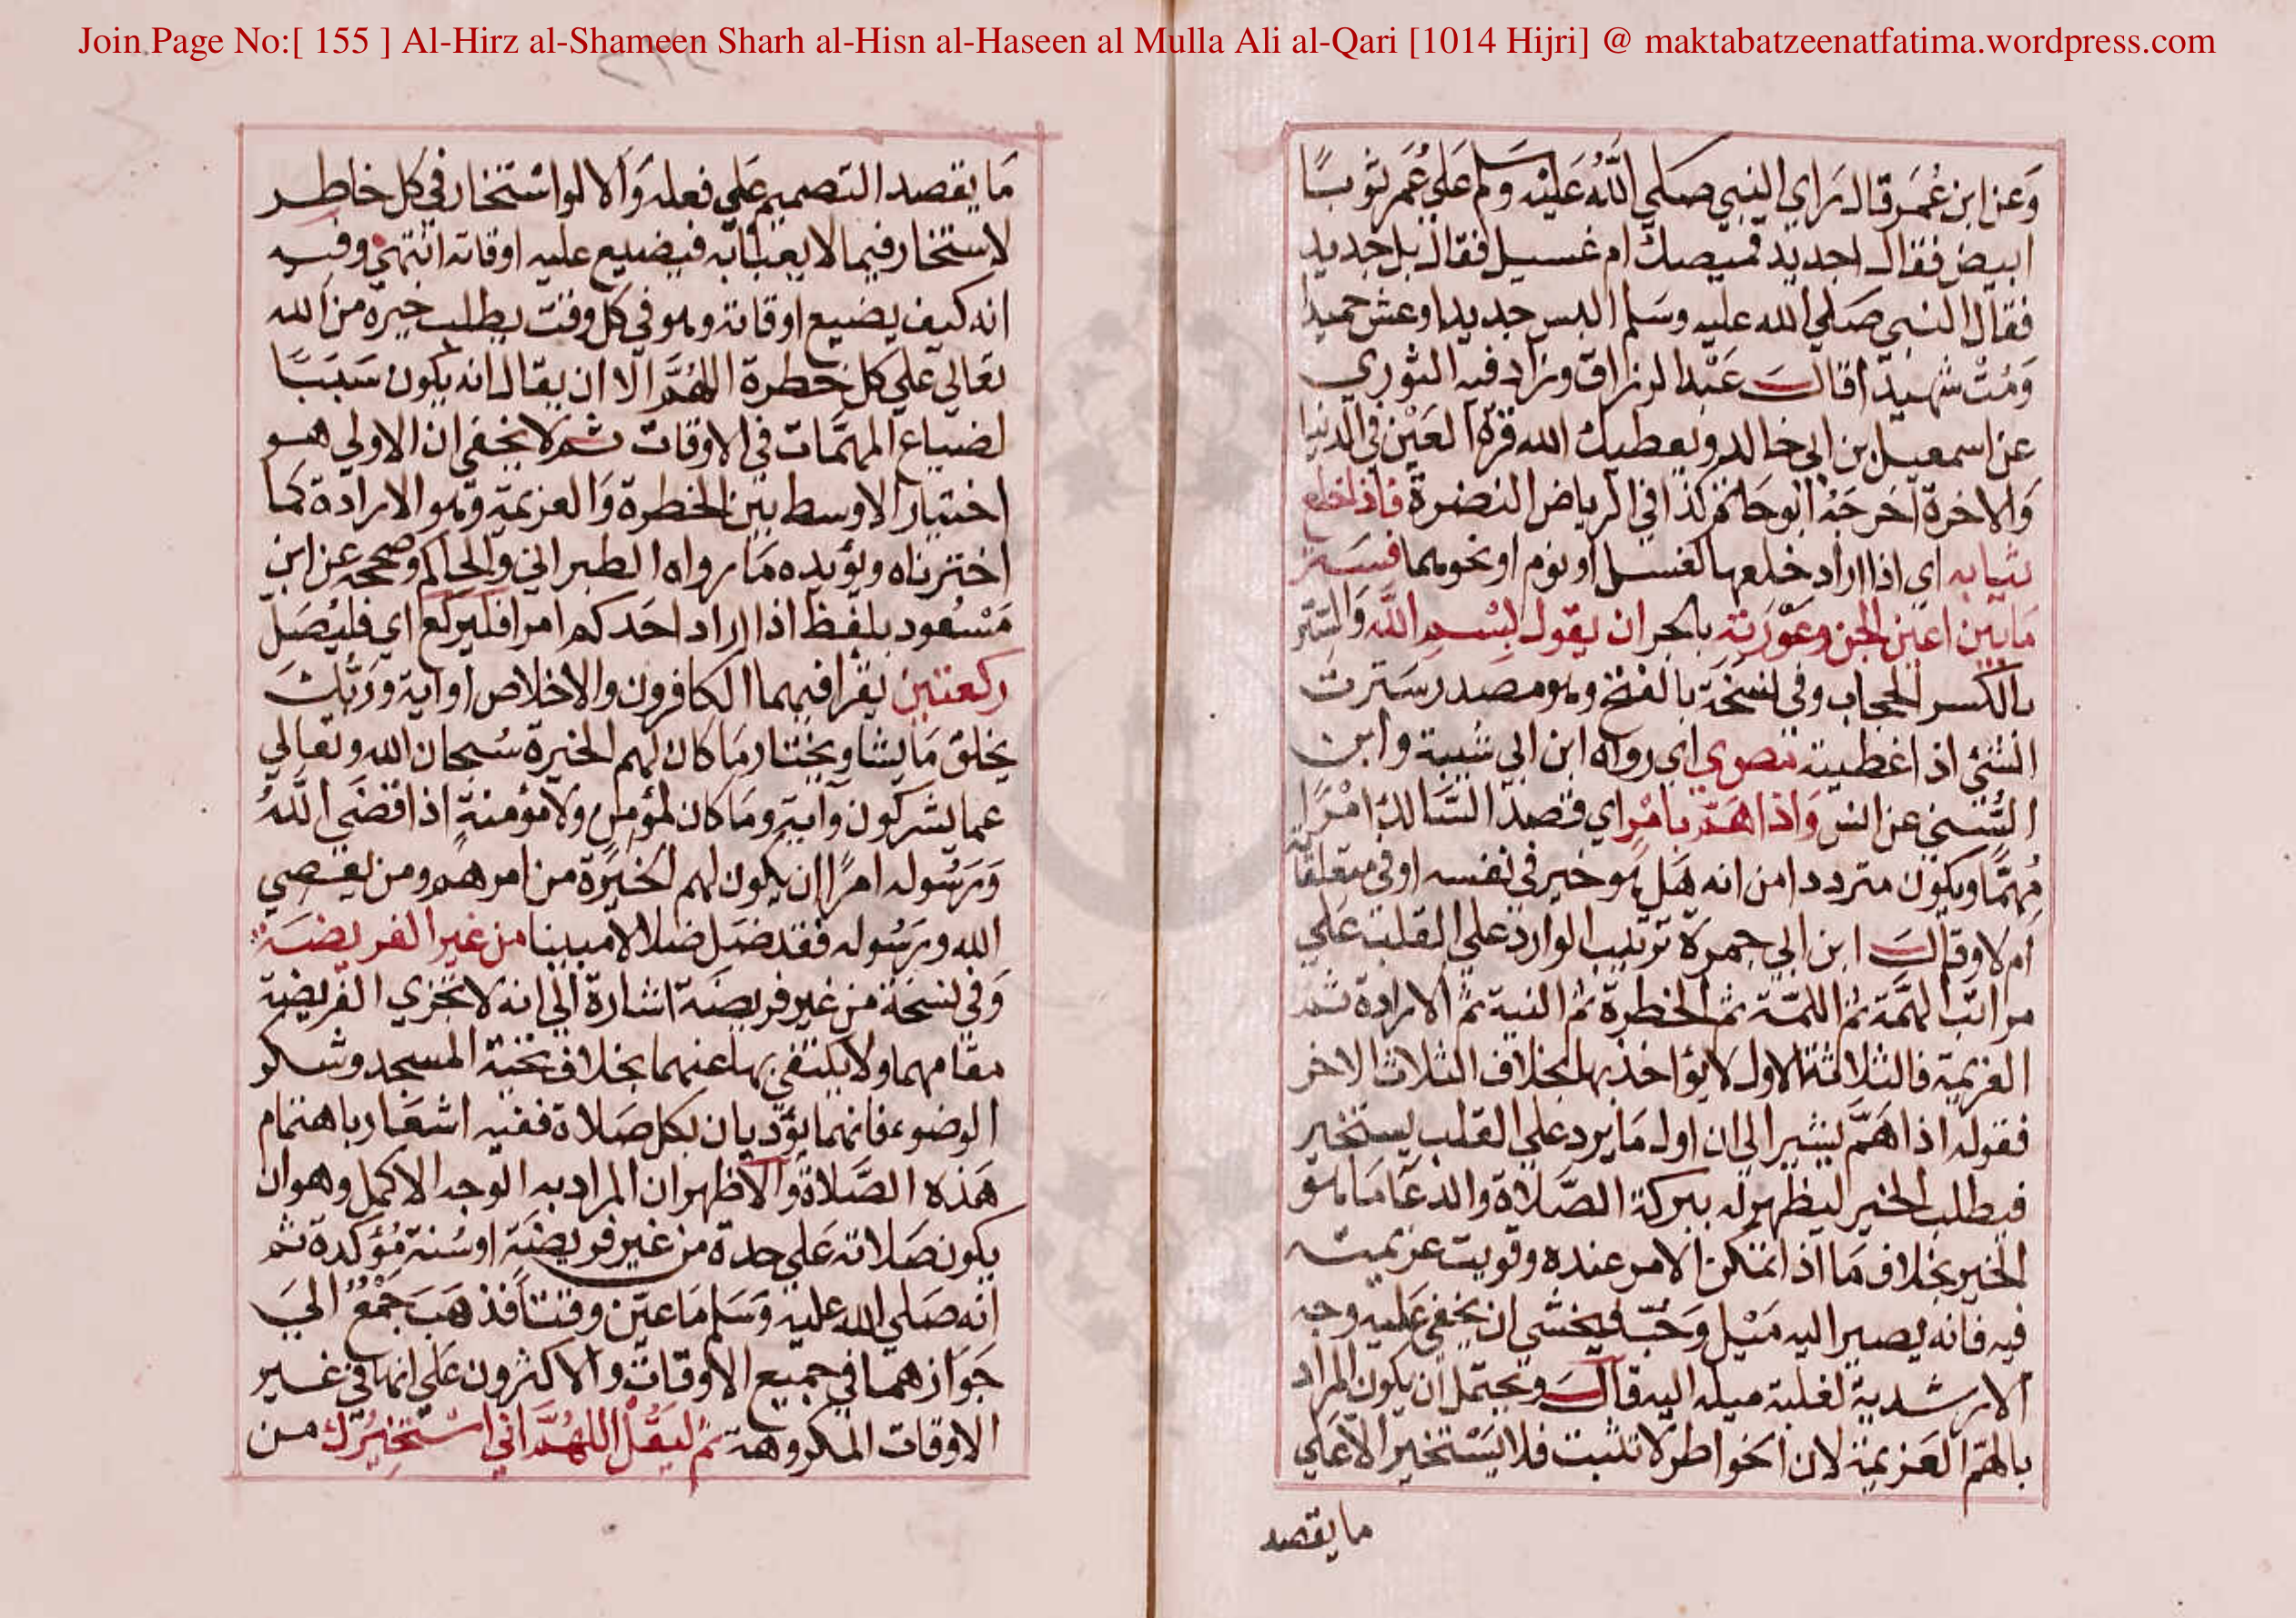 Join Page No:[ 155 ] Al-Hirz al-Shameen Sharh al-Hisn al-Haseen al Mulla Ali al-Qari [1014 Hijri] @ maktabatzeenatfatima.wordpress.com
وَعن ابن عُمَر قال راي النبي صَلي اللّه عَليْه وسَلم عَلي عُمَر ثوبًا
ابيض فقال اجديد قميصك ام غسيل فقال بل جديد
فقال النبي صَلي الله عليه وسَلم البس جديدا وعش حميدا
وَمُتْ شهيدا قالَ عَبْد الرزاق وزاد فيه الثوري
عن اسمعيل بن ابي خالد ويعطيك الله قرة العَيْن في الدنيا
وَالاخرة اخرجَهُ ابوحَاتم كذا في الرياض النضرة فاذا خلع
ثيابه اي اذا اراد خلعها لغسل او نوم او نحوهما فسَتر
مَا بَين اعين الجن وعَوْرَته بالجر ان يقول بسْم اللّه وَالستر
بالكسر الحجاب وفي نسخة بالفتح وهو مصدر سترت
الشئ اذا غطيته مص وي اي رواه ابن ابي شيبة وابن
السُّني عن انس وَاذا هَمَّ بامْر اي قصد السَّالك امْرًا
مُهمًّا ويكون مترددا من انه هَل هو خير في نفسه او في متعلقاته
ام لا وقالَ ابن ابي جمرة ترتيب الوارد علي القلب عَلي
مراتب الهمَّة ثم اللمّة ثم الخطرة ثم النية ثم الارادة ثم
العزيمة فالثلاثة الاول لا يؤاخذ بها بخلاف الثلاث الاخر
فقوله اذا هَمَّ يشير الي ان اول مَا يرد علي القلب يستخير
فيطلب الخير ليظهر له ببركة الصَّلاة والدعَا مَا هو
الخير بخلاف مَا اذا تمكن الامر عنده وقويت عزيمته
فيه فانه يصير اليه مَيْل وَحُبّ فيخشي ان يخفي عَليه وجه
الارشدية لغلبة ميله اليه قالَ ويحتمل ان يكون المراد
بالهَمّ العَزيمة لان الخواطر لا تثبت فلا يسْتخير الّا عَلي
ما يقصد
مَا يقصد التصميم عَلي فعله وَالا لو اسْتخار في كل خاطر
لاستخار فيما لا يعبا به فيضيع عليه اوقاته انتهي وفيه
انه كيف يضيع اوقاته وهو في كل وقت يطلب خيره من الله
تعَالي علي كل خطرة اللهُمَّ الا ان يقال انه يكون سَبَبًا
لضياع المهمّات في الاوقات ثم لا يخفي ان الاولي هو
اختيار الاوسط بين الخطرة وَالعزيمة وهو الارادة كما
اخترناه ويؤيده مَا رواه الطبراني والحاكم وصححه عن ابن
مَسْعُود بلفظ اذا اراد احَدكم امرا فليركع اي فليُصَل
ركعتين يقرا فيهما الكافرون والاخلاص او اية وَرَبُّكَ
يخلق مَا يشا ويختار مَا كان لهم الخيرة سُبحان الله وتعالي
عما يشركون وآية ومَا كان لمؤمن ولا مؤمنة اذا قضَي اللّهُ
وَرسُوله امرًا ان يكون لهم الخيَرَة من امرهم ومن يعصي
الله ورسُوله فقد ضَل ضلالا مبينا من غير الفريضَة
وَفي نسخة من غير فريضَة اشارة الي انه لا تجزي الفريضة
مقامهما ولا يكتفي بها عنهما بخلاف تحية المسجد وشكر
الوضوء فانهما يؤديان بكل صَلاة ففيه اشعَار باهتمام
هَذه الصَّلاة وَالاظهر ان المراد به الوجه الاكمل وهو ان
يكون صَلاته عَلي حدة من غير فريضَة او سُنة مُؤكدة ثم
انه صَلي الله عليْه وَسَلم مَا عيّن وقتاً فذهَبَ جَمْعٌ الَي
جَوازهمَا في جميع الاوقات والاكثرون عَلي انها في غير
الاوقات المكروهة ثم ليَقُلْ اللهُمَّ اني اسْتَخِيرُكَ من